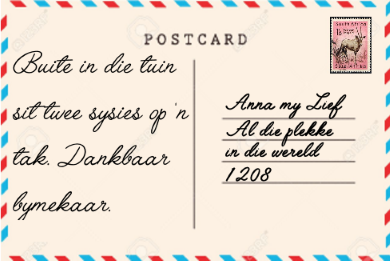 POSTCARD
Buite in die tuin
sit twee sysies op 'n
tak. Dankbaar
bymekaar.
Anna my Lief
Al die plekke
in die wereld
1208